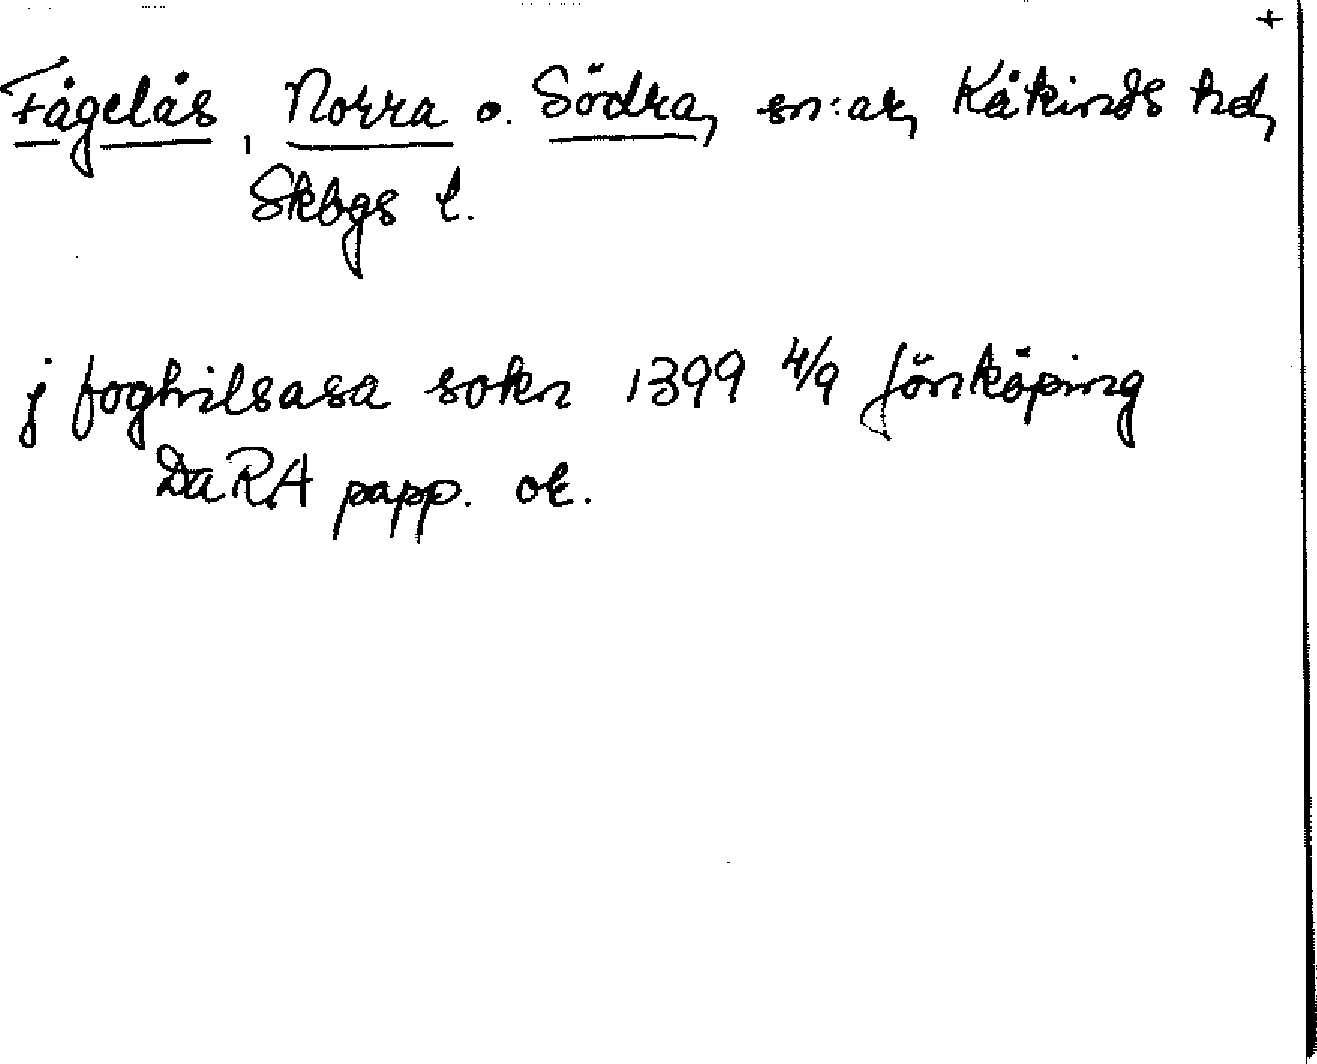 +
Fågelås, Norra o. Södra, sn:ar, Kåkinds hd,
Skbgs l.
j foghilsasa sokn 1399 4/9 Jönköping
DaRA papp. or.